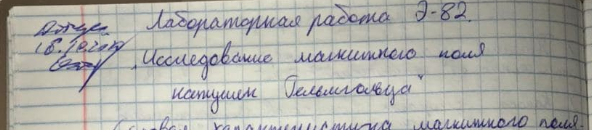 Лабораторная работа Э-82.
"Исследование магнитного поля
катушек Гельмгольца"
характеристика магнитного поля.